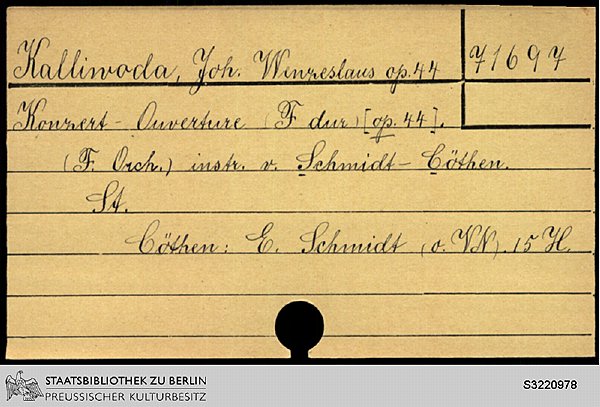 Kalliwoda, Joh. Wenzeslaus op. 44 71697
Konzert-Ouverture (F dur) [op. 44].
(F. Orch.) instr. v. Schmidt-Cöthen.
St.
Cöthen: E. Schmidt (o. VN). 15 H.
STAATSBIBLIOTHEK ZU BERLIN
PREUSSISCHER KULTURBESITZ
S3220978